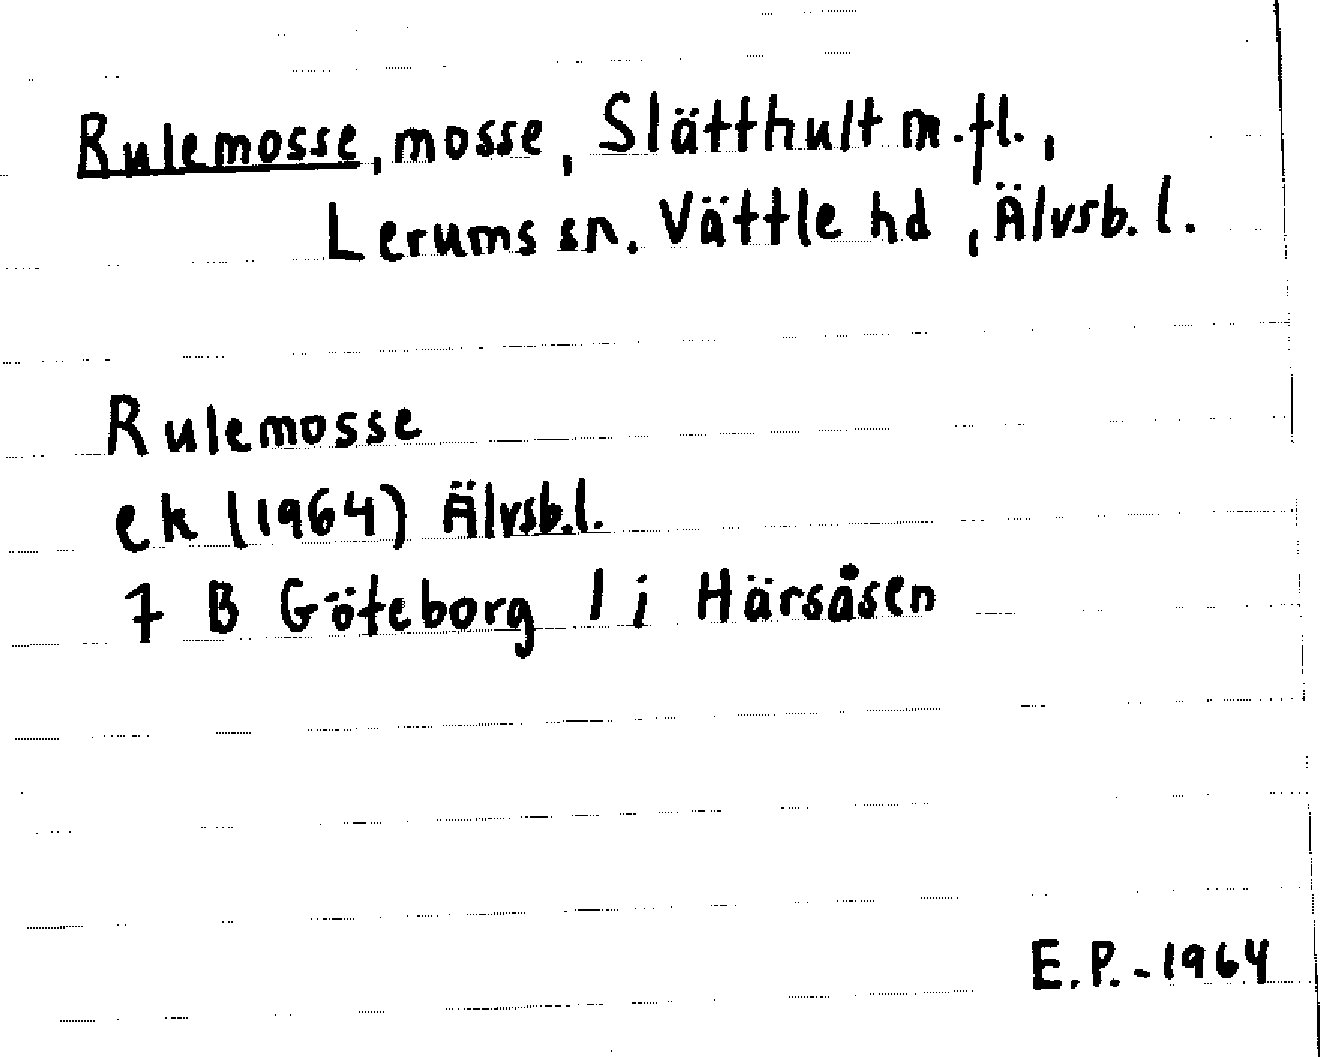 Rulemosse, mosse, Slätthult m.fl.,
Lerums sn. Vättle hd, Älvsb. l.
Rulemosse
ek (1964) Älvsb.l.
7 B Göteborg 1 i Härsåsen
E.P. - 1964